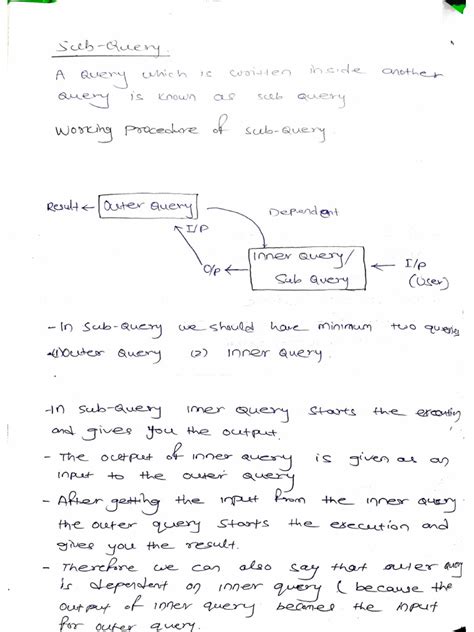 Sub-Query.
A Query which is written inside another
query is known as sub query
Working Procedure of sub-Query.
Result ← Outer Query
Dependent
I/P
Inner Query/
Sub Query
O/p
I/p
(User)
- In Sub-Query we should have minimum two queries
(1) Outer Query (2) Inner Query.
- In Sub-Query inner Query starts the execution
and gives you the output.
- The output of inner query is given as an
input to the outer query
- After getting the input from the inner query.
the outer query starts the execution and
gives you the result.
- Therefore we can also say that outer query
is dependent on inner query ( because the
output of inner query becomes the input
for outer query.